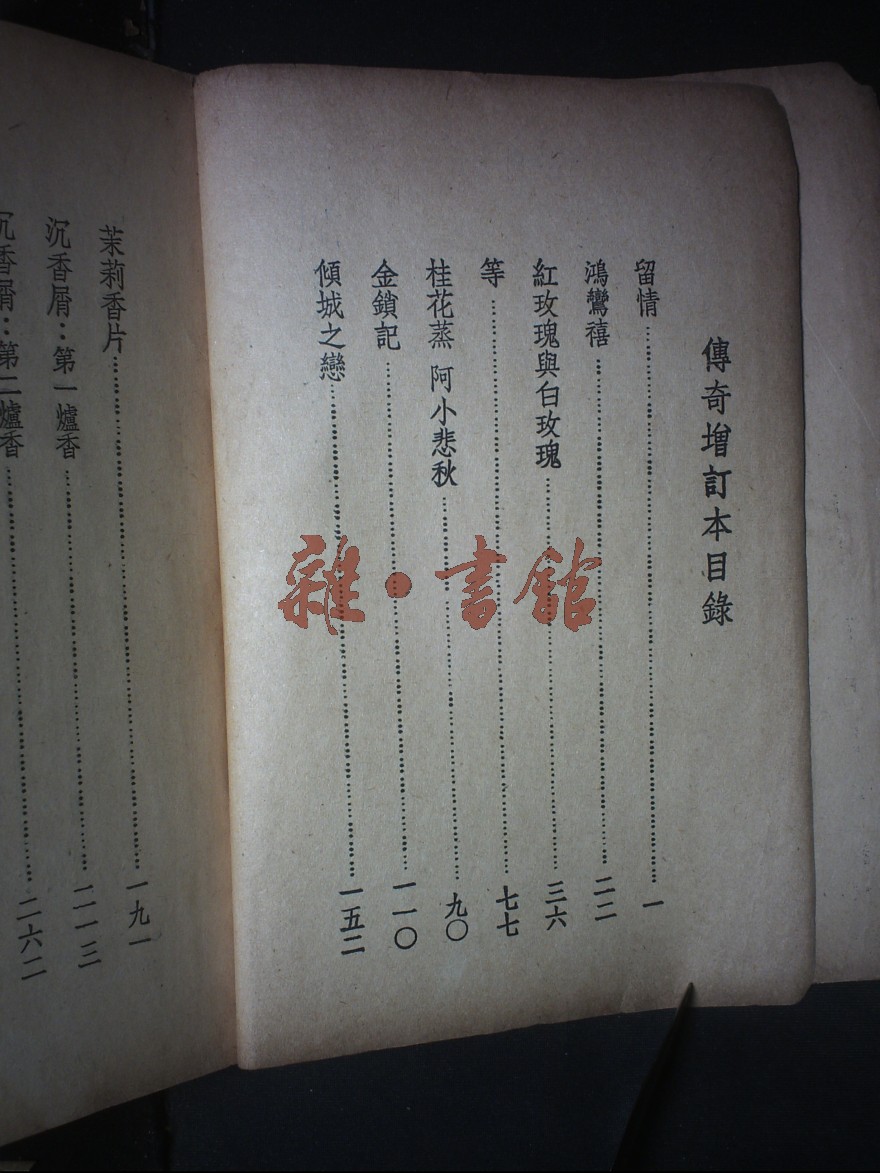 傳奇增訂本目錄
留情 一
鴻鸞禧 二二
紅玫瑰與白玫瑰 三六
等 七七
桂花蒸 阿小悲秋 九〇
金鎖記 一一〇
傾城之戀 一五二
茉莉香片 一九一
沉香屑：第一爐香 二一三
沉香屑：第二爐香 二六二
雜·書館